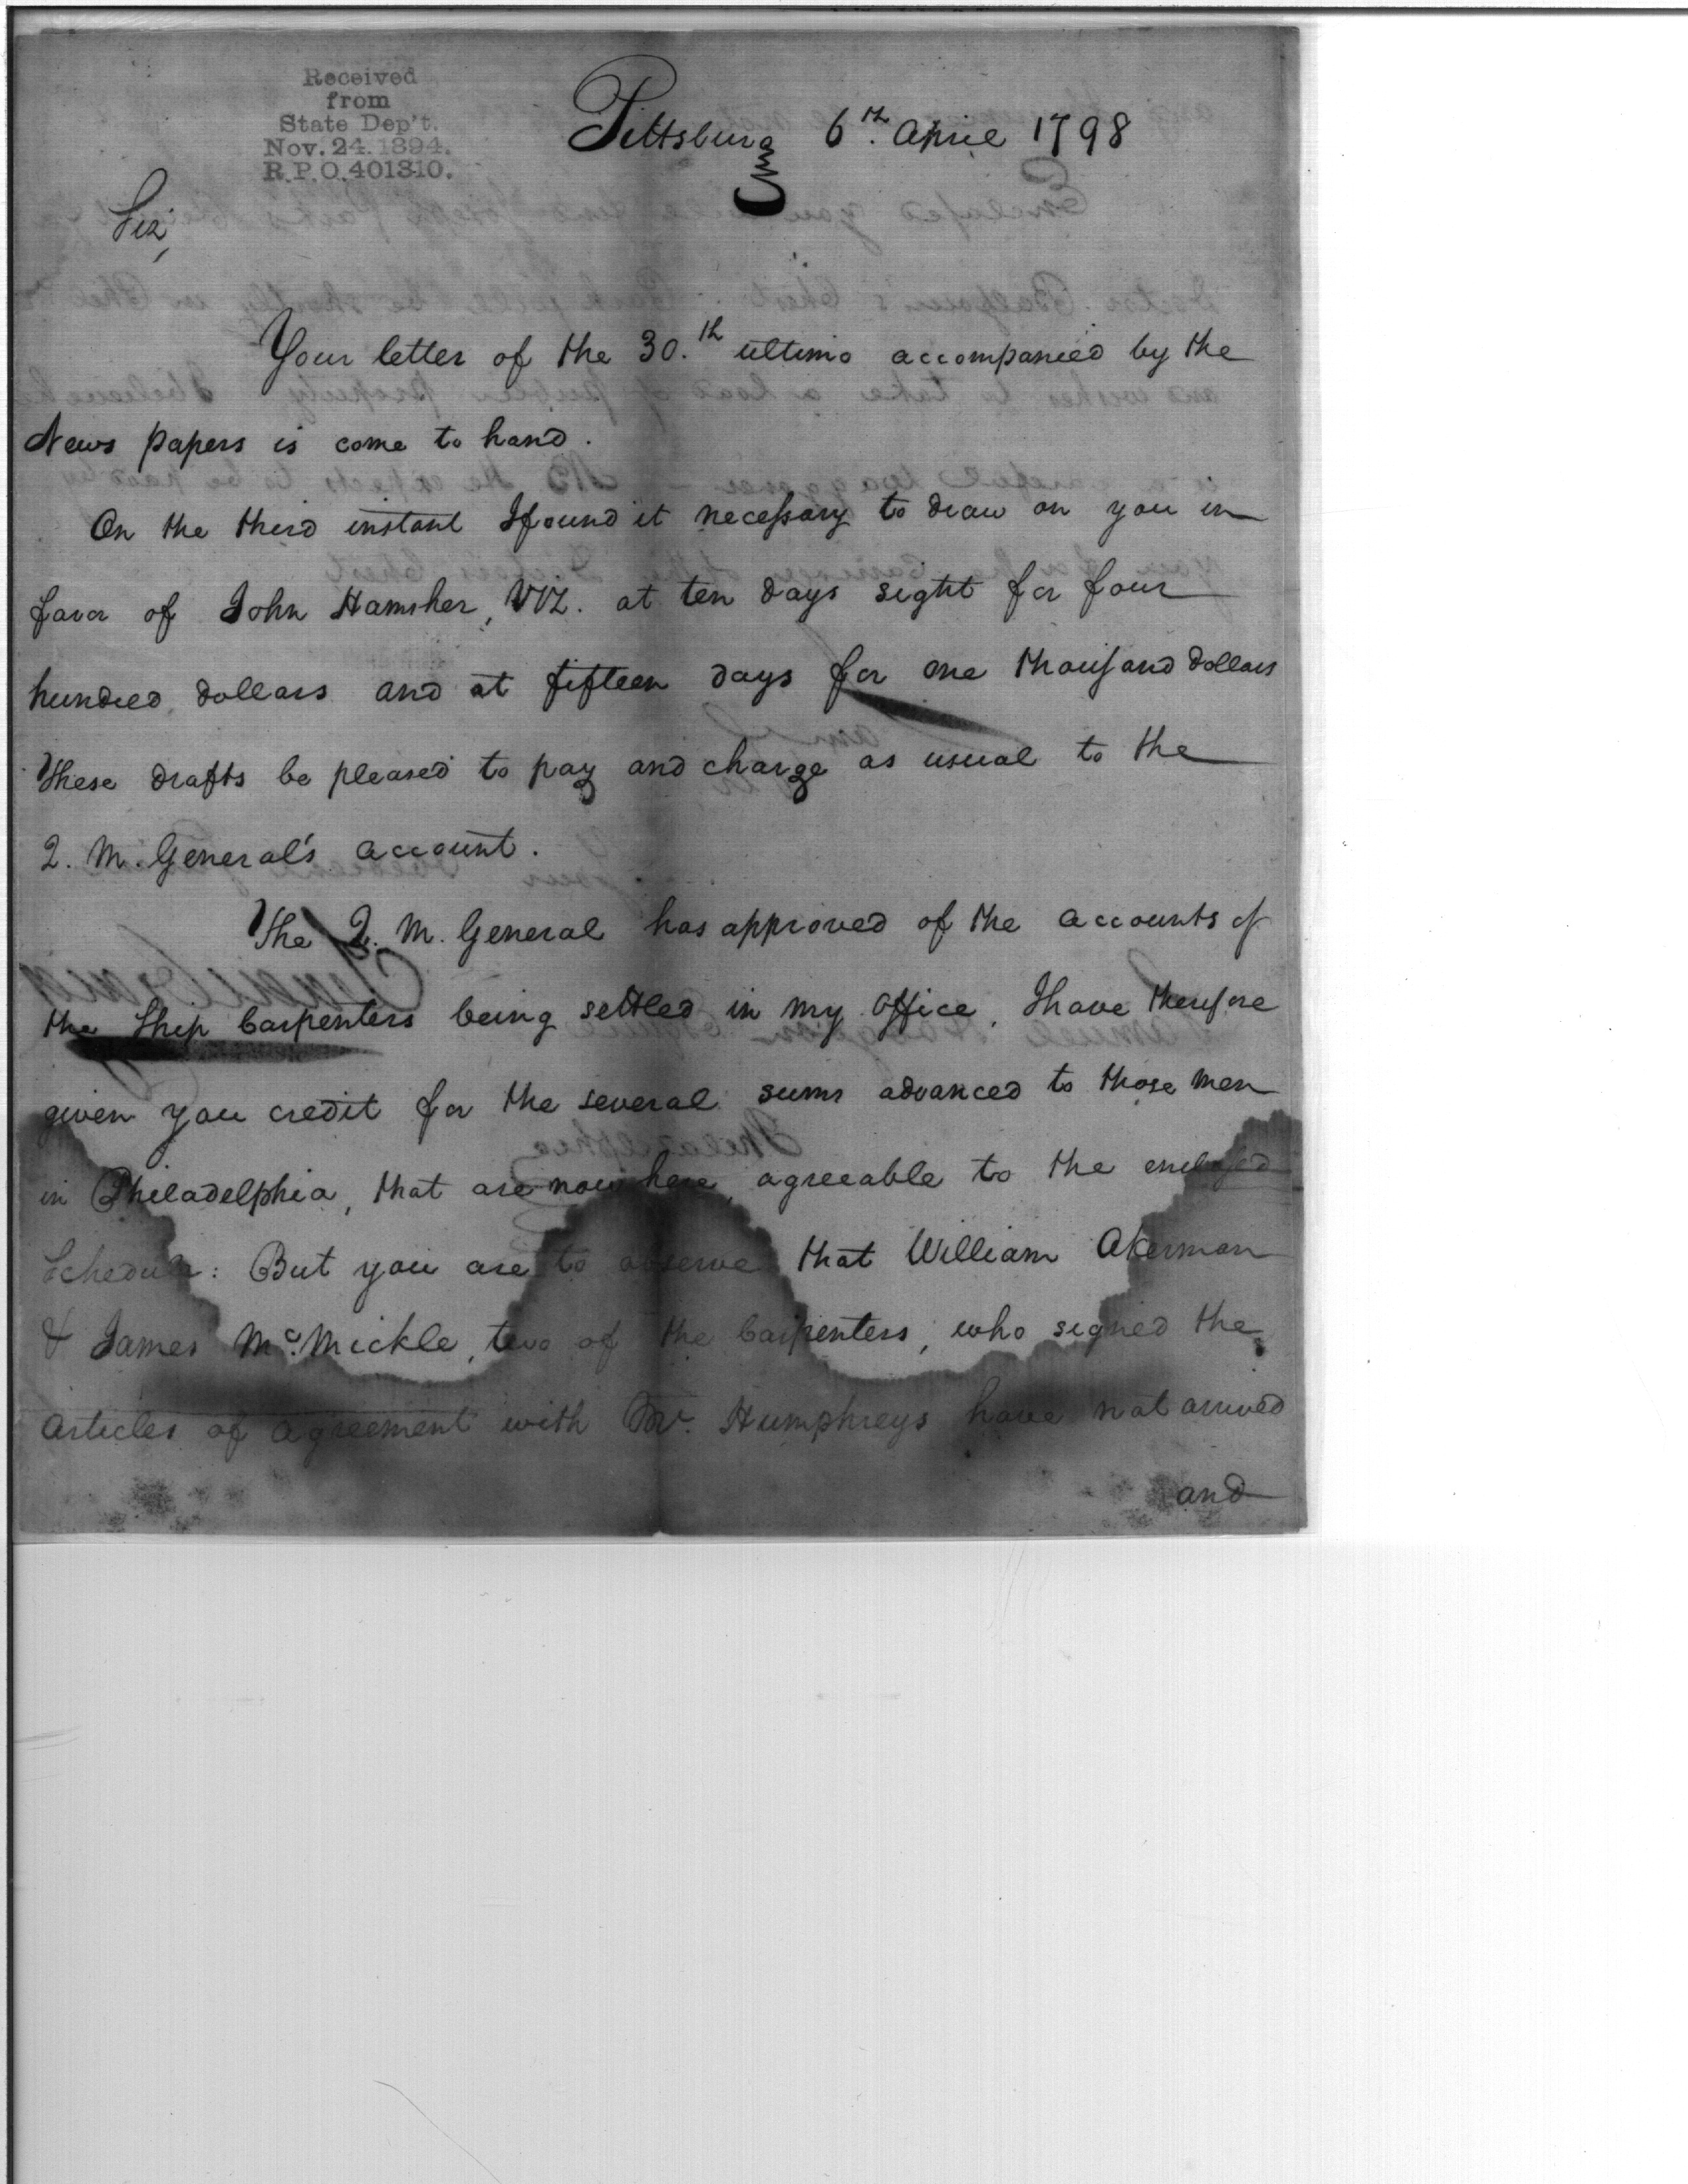 Received
from
State Dep't.
Nov. 24. 1894.
R.P.O. 401310.
Pittsburg 6th. April 1798
Sir,
Your letter of the 30.th ultimo accompanied by the
News papers is come to hand.
On the third instant I found it necessary to draw on you in
favor of John Hamsher, Viz. at ten days sight for four
hundred dollars and at fifteen days for one thousand dollars
These drafts be pleased to pay and charge as usual to the
Q. M. General's account.
The Q. M. General has approved of the accounts of
the Ship Carpenters being settled in my office. I have therefore
given you credit for the several sums advanced to those men
in Philadelphia, that are now here, agreeable to the enclosed
Schedule: But you are to observe that William Akerman
& James Mc. Mickle, two of the Carpenters, who signed the
Articles of Agreement with Mr. Humphreys have not arrived
and